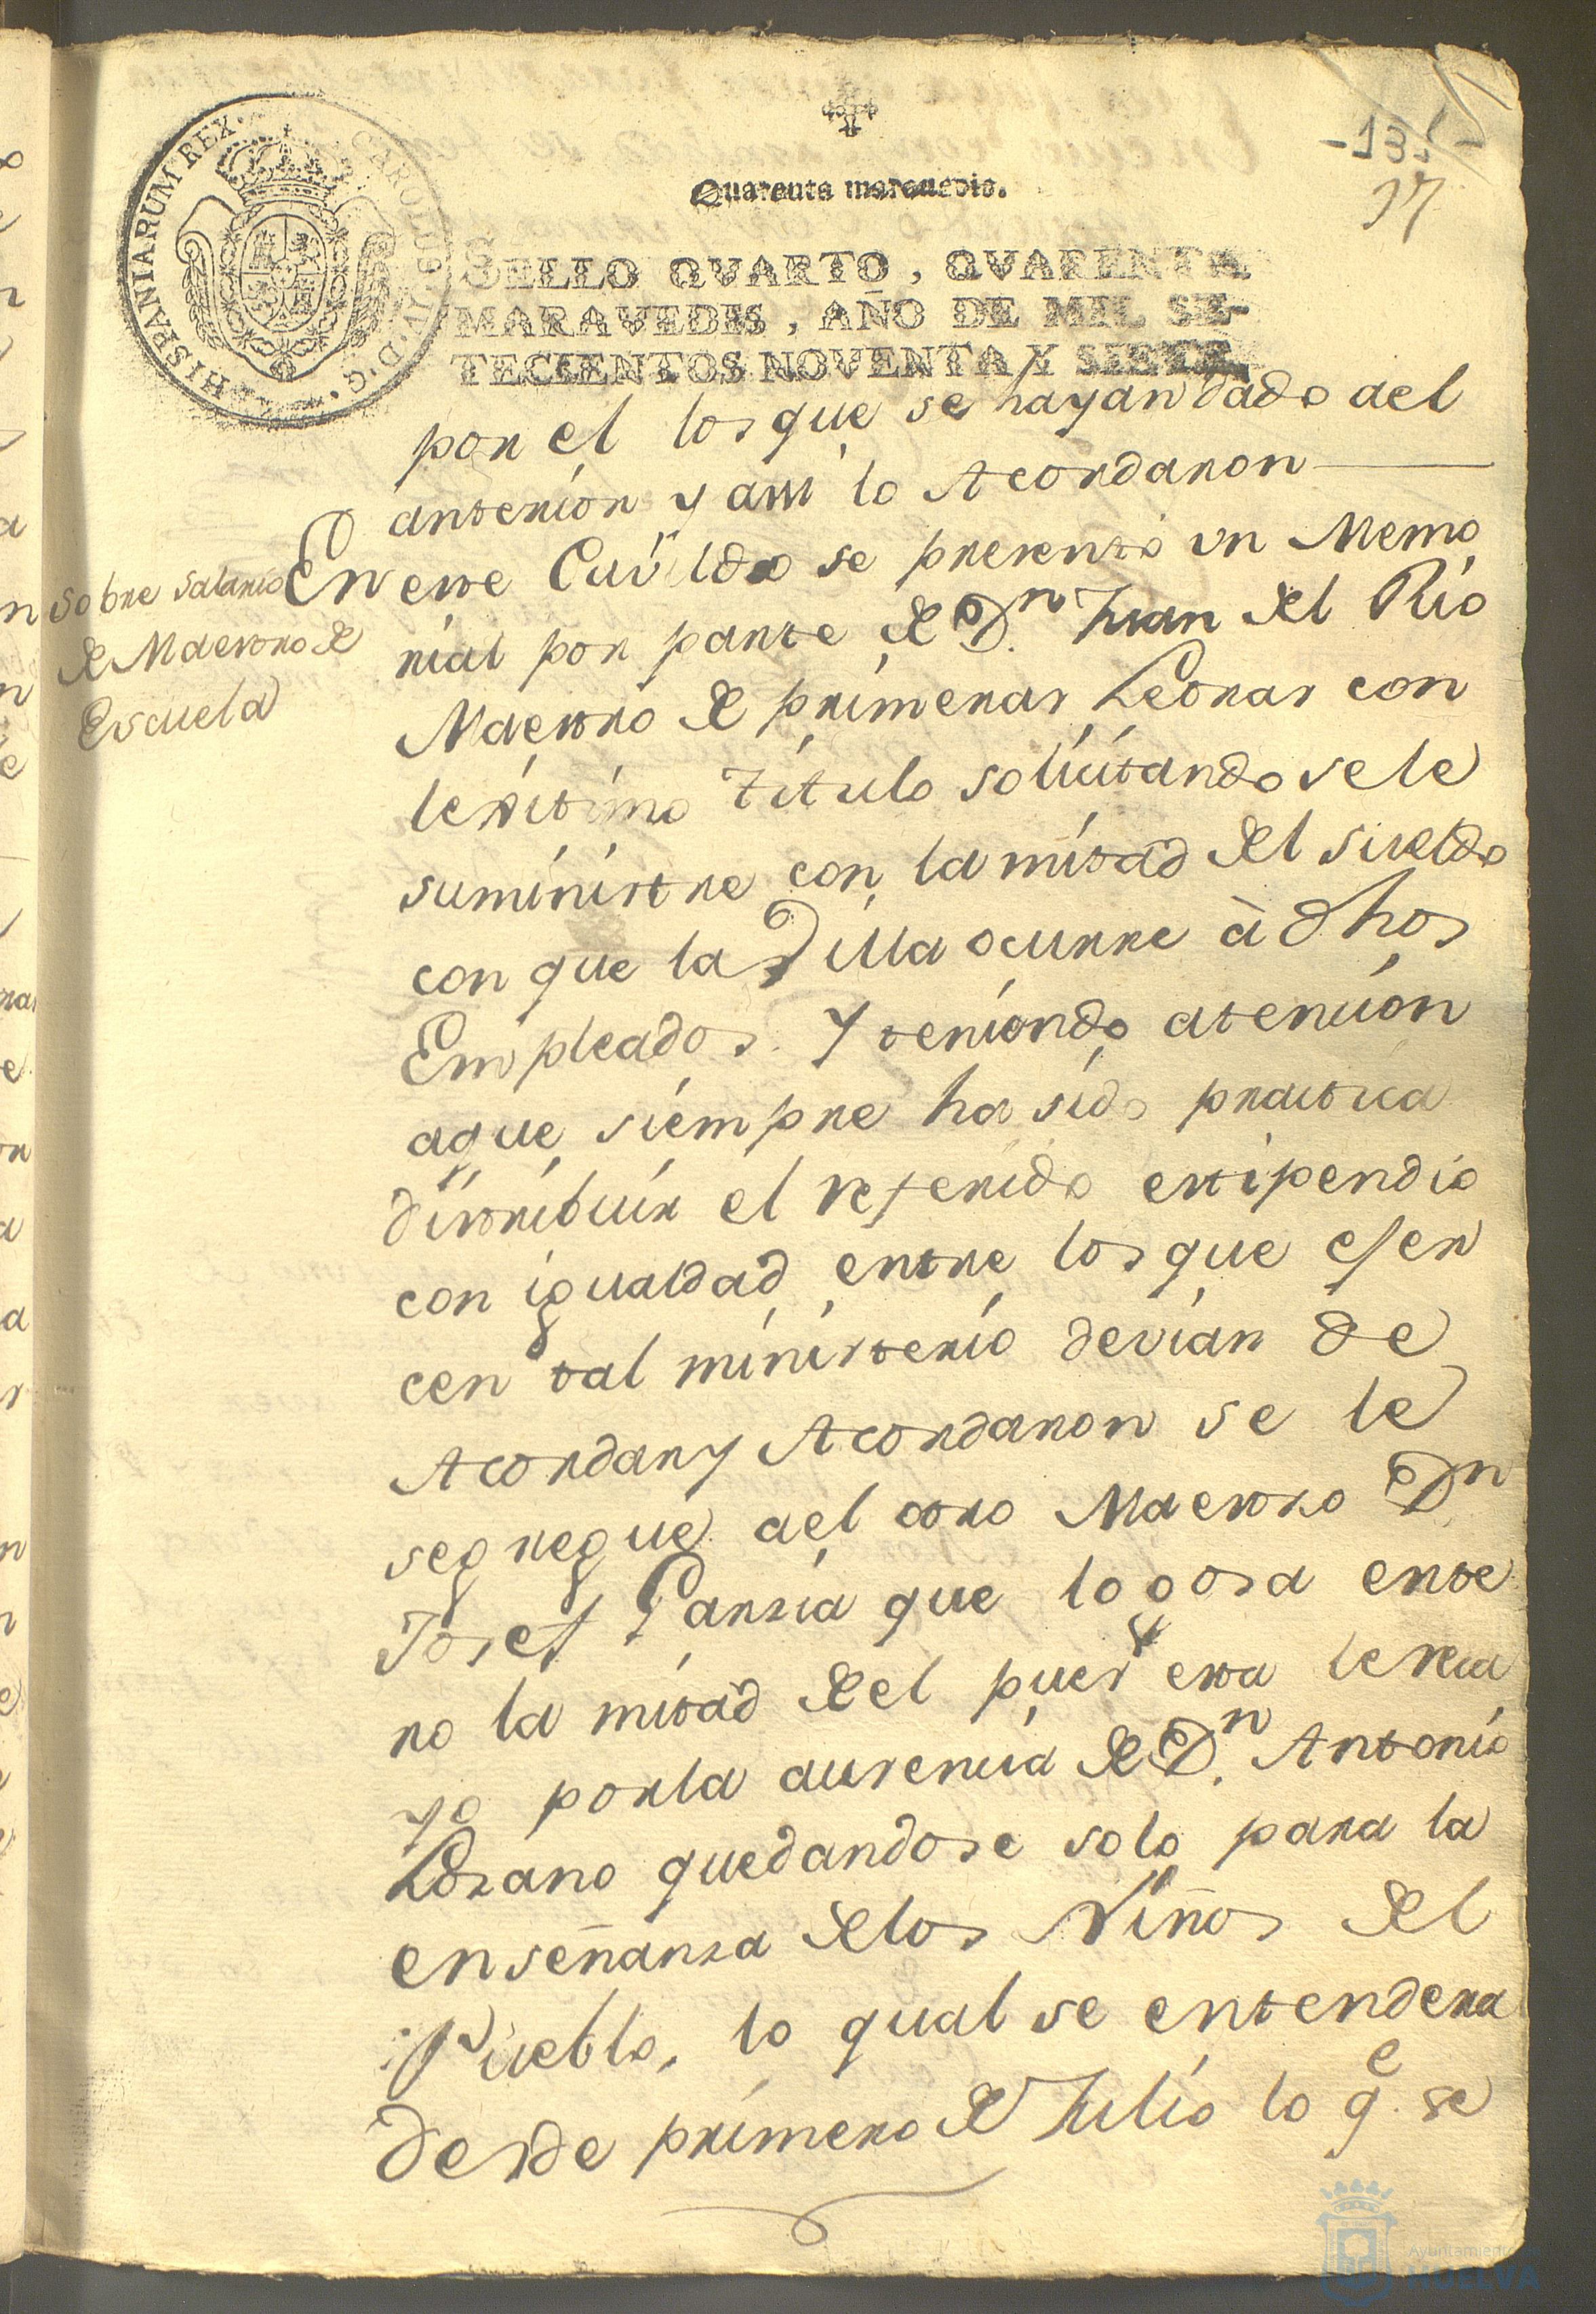 HISPANIARUM REX. CAROLUS IV. D. G.
-131-
17
Quarenta maravedis.
SELLO QVARTO, QVARENTA
MARAVEDIS, AÑO DE MIL SE-
TECIENTOS NOVENTA Y SIETE
por el los que se hayan dado ael
anterior y assi lo Acordaron
Sobre Salario
de Maestro de
Escuela
En este Cavildo se presentó un Memo
rial por parte de Dn. Juan del Rio
Maestro de primeras Letras con
lexitimo titulo solicitando se le
suministre con la mitad del sueldo
con que la Villa ocurre à dhos
Empleados. Y teniendo atencion
aque siempre ha sido practica
distribuir el referido estipendio
con igualdad entre los que ejer
cen tal ministerio devian de
Acordar y Acordaron se le
segregue ael otro Maestro Dn
Josef Garzia que lo gosa ente
ro la mitad de el pues esta le reca
yo por la ausencia de Dn. Antonio
Lozano quedandose solo para la
enseñanza de los Niños del
Pueblo, lo qual se entendera
desde primero de Julio lo qe. se
Ayuntamiento
HUELVA